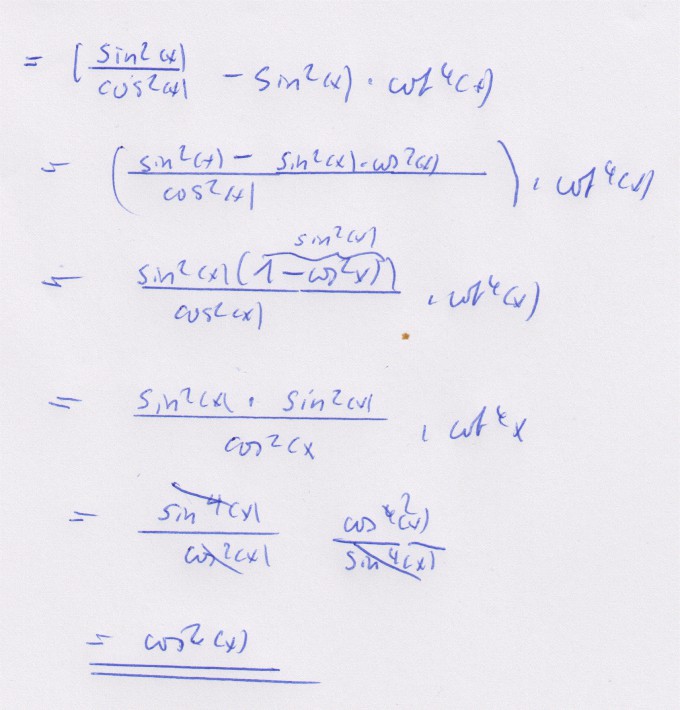 = ( sin²(x) / cos²(x) - sin²(x) · cot⁴(x)
= ( sin²(x) - sin²(x)·cos²(x) / cos²(x) ) · cot⁴(x)
sin²(x)
= sin²(x) (1 - cos²x)) / cos²(x) · cot⁴(x)
= sin²(x) · sin²(x) / cos²(x · cot⁴x
= sin⁴(x) / cos²(x) cos⁴²(x) / sin⁴(x)
= cos²(x)